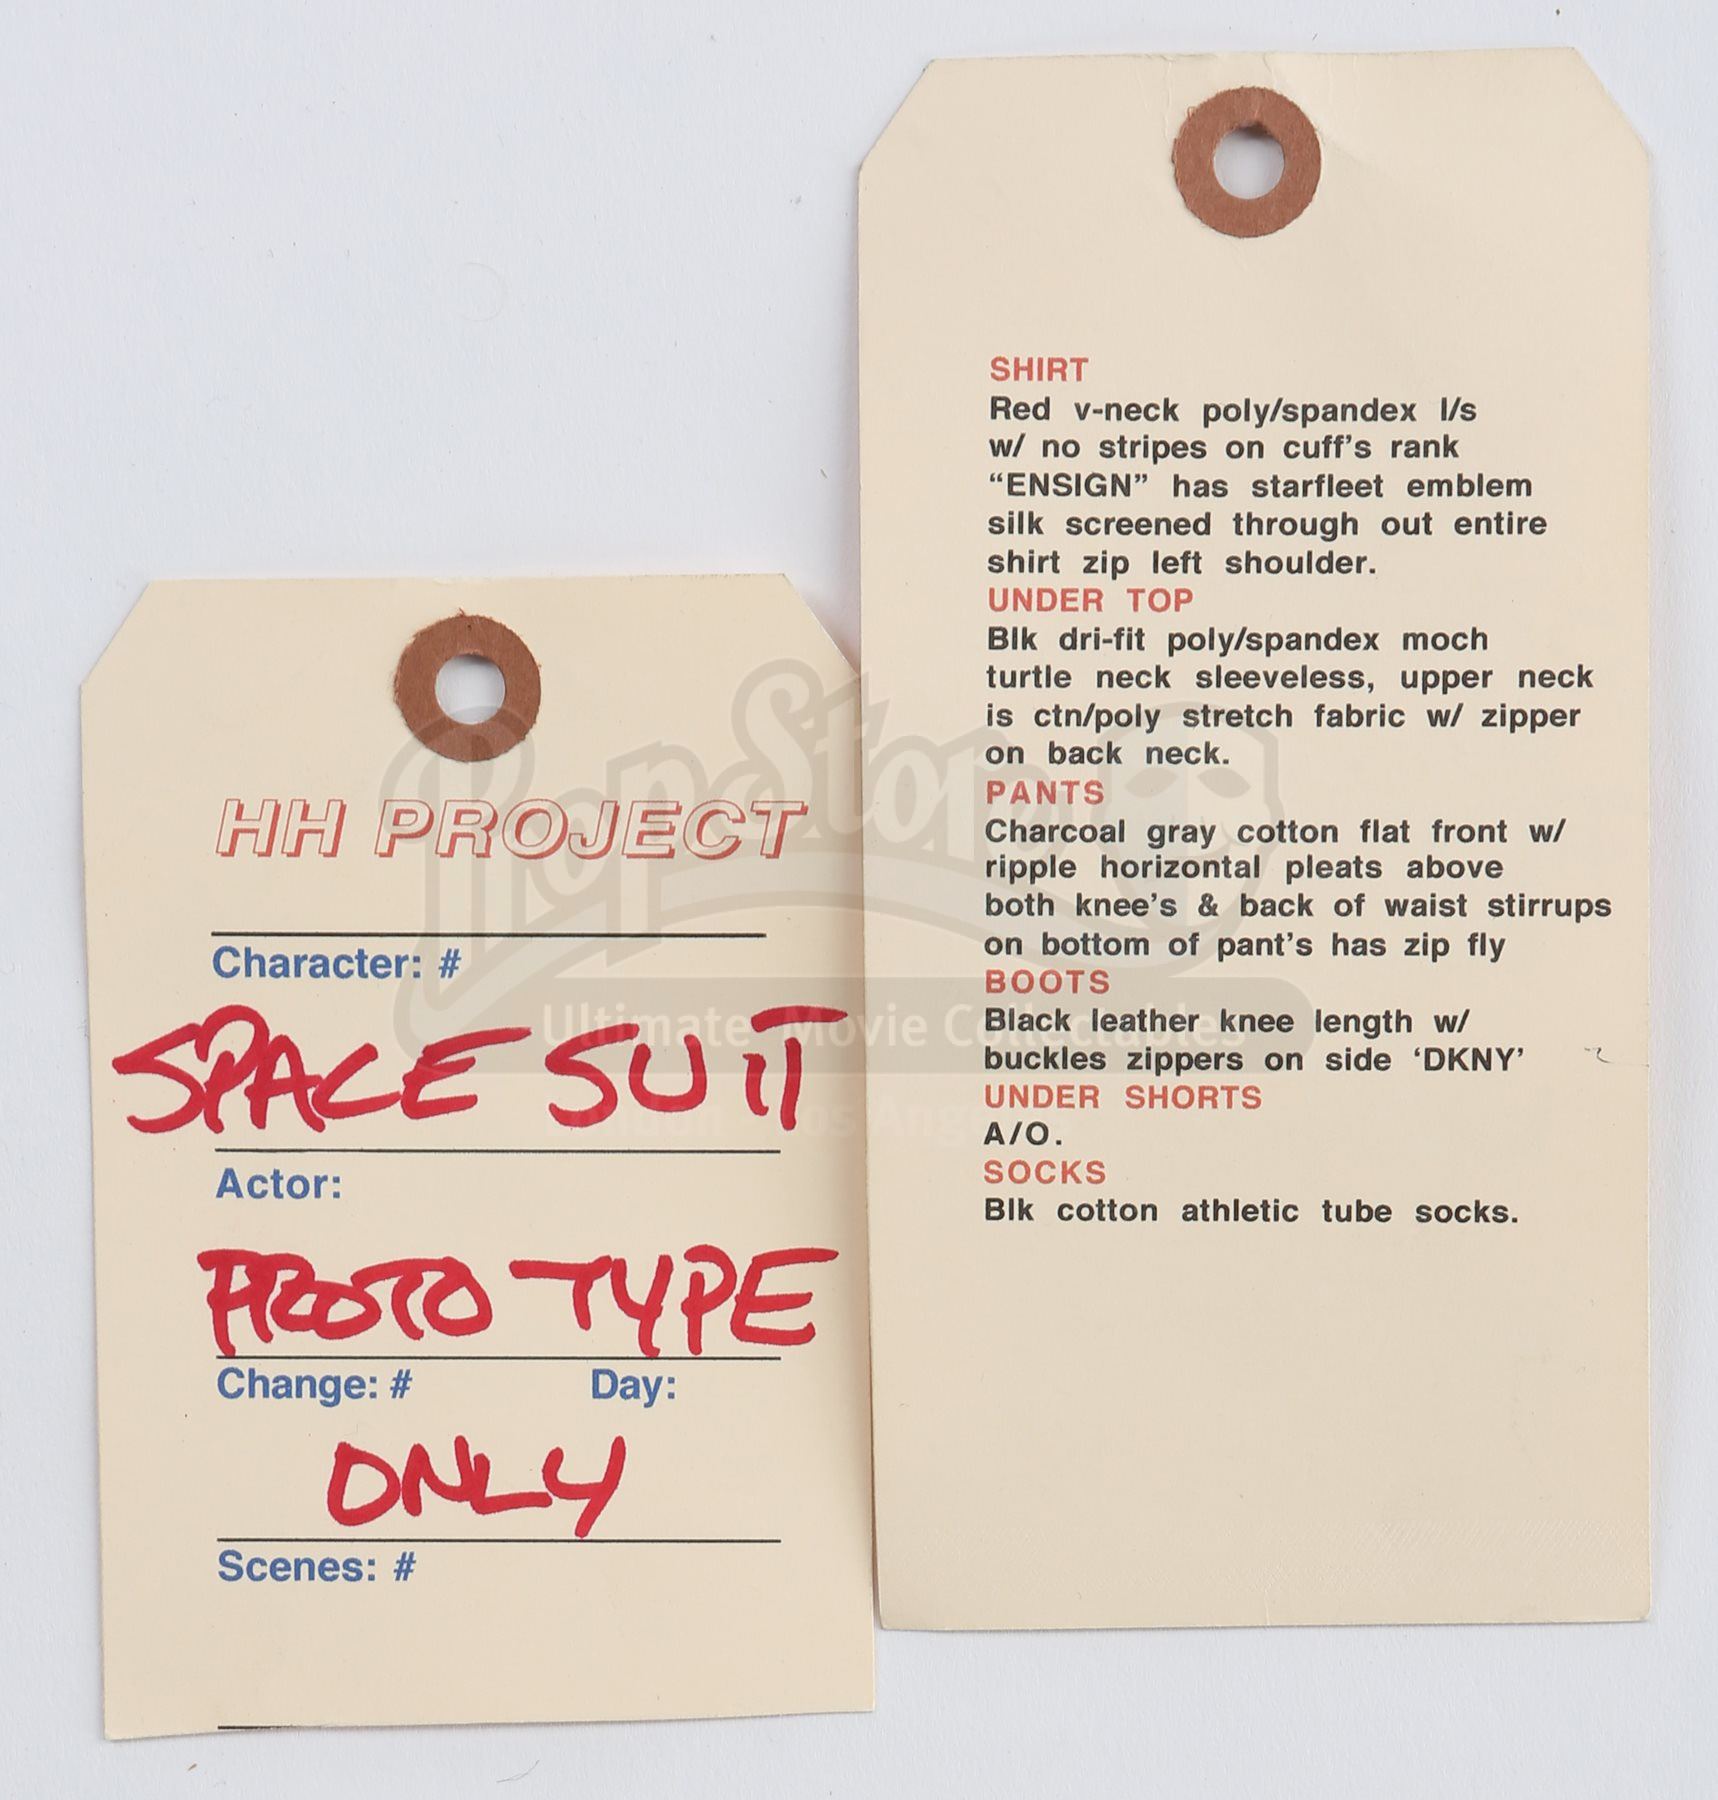 HH PROJECT
Character: #
SPACE SUIT
Actor:
PROTO TYPE
Change: # Day:
ONLY
Scenes: #
SHIRT
Red v-neck poly/spandex l/s
w/ no stripes on cuff's rank
“ENSIGN” has starfleet emblem
silk screened through out entire
shirt zip left shoulder.
UNDER TOP
Blk dri-fit poly/spandex moch
turtle neck sleeveless, upper neck
is ctn/poly stretch fabric w/ zipper
on back neck.
PANTS
Charcoal gray cotton flat front w/
ripple horizontal pleats above
both knee's & back of waist stirrups
on bottom of pant's has zip fly
BOOTS
Black leather knee length w/
buckles zippers on side ‘DKNY’
UNDER SHORTS
A/O.
SOCKS
Blk cotton athletic tube socks.
PropStore
Ultimate Movie Collectables
London Los Angeles